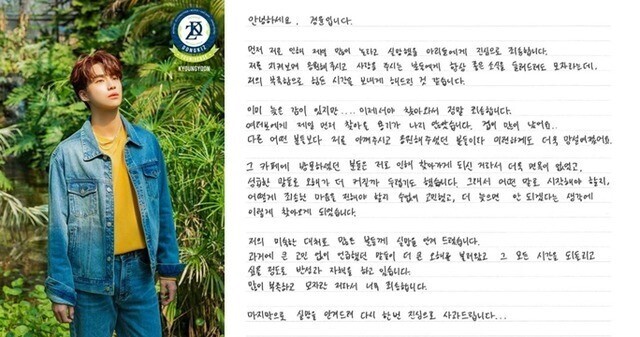 DONGKIZ
KYOUNGYOON
안녕하세요, 경윤입니다.
먼저 저로 인해 제일 많이 놀라고 실망했을 아리들에게 진심으로 죄송합니다.
저를 지켜보며 응원해주시고 사랑을 주시는 분들에게 항상 좋은 소식을 들려드려도 모자라는데,
저의 부족함으로 힘든 시간을 보내게 해드린 것 같습니다.
이미 늦은 감이 있지만.... 이제서야 찾아와서 정말 죄송합니다.
여러분에게 제일 먼저 찾아올 용기가 나지 않았습니다. 겁이 많이 났어요..
다른 어떤 분들보다 저를 아껴주시고 응원해주셨던 분들이라 이런하게도 더욱 망설여졌어요.
그 카페에 방문하였던 분들은 저로 인해 찾아가게 되신 거라서 더욱 면목이 없었고,
섣급한 말들로 오해가 더 커질까 두렵기도 했습니다. 그래서 어떤 말로 시작해야 할지,
어떻게 죄송한 마음을 전해야 할지 수없이 고민했고, 더 늦으면 안 되겠다는 생각에
이렇게 찾아오게 되었습니다.
저의 미숙한 대처로 많은 분들께 실망을 안겨 드렸습니다.
과거에 큰 고민 없이 언급했던 말들이 더 큰 오해를 불러왔고 그 모든 시간을 되돌리고
싶을 정도로 반성과 자책을 하고 있습니다.
많이 부족하고 모자란 저라서 너무 죄송합니다.
마지막으로 실망을 안겨드려 다시 한번 진심으로 사과드립니다...